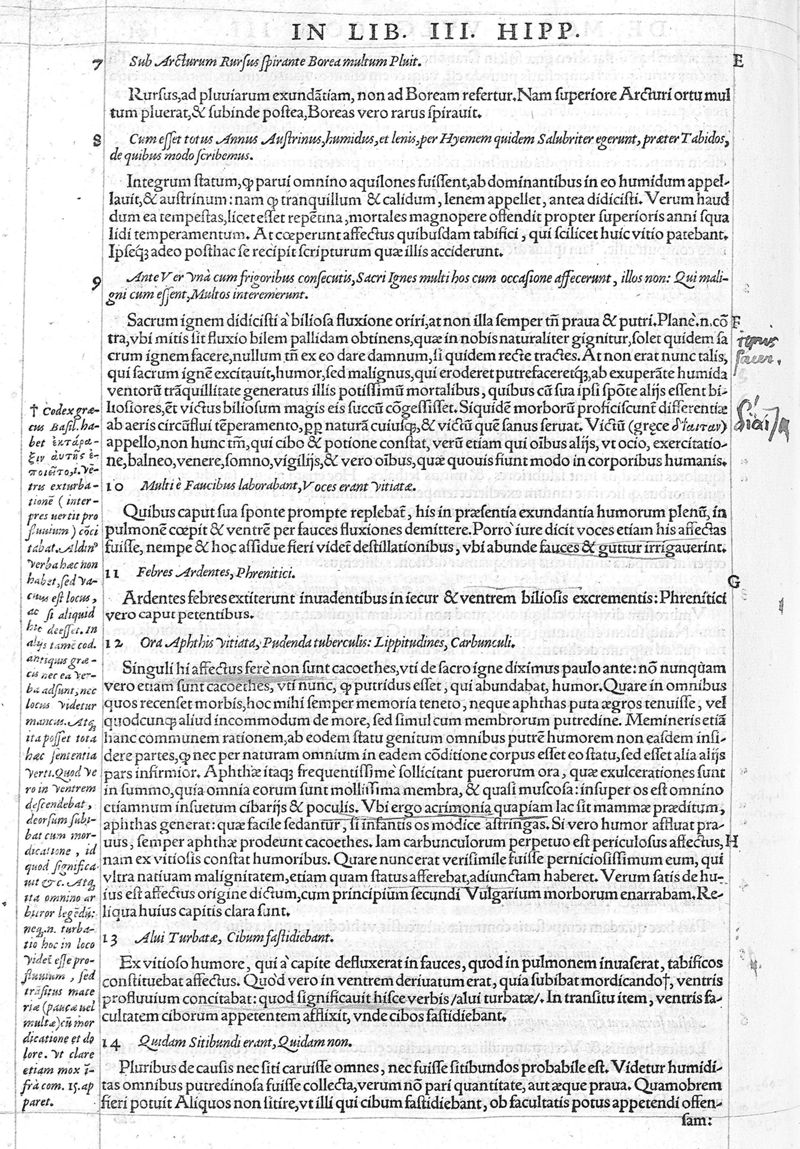 IN LIB. III. HIPP.
7 Sub Arcturum Rursus spirante Borea multum Pluit. E
Rursus,ad pluuiarum exundãtiam, non ad Boream refertur. Nam superiore Arcturi ortu mul
tum pluerat,& subinde postea, Boreas vero rarus spirauit.
8 Cum esset totus Annus Austrinus,humidus,et lenis,per Hyemem quidem Salubriter egerunt, præter Tabidos,
de quibus modo scribemus.
Integrum statum, ꝙ parui omnino aquilones fuissent,ab dominantibus in eo humidum appel-
lauit,& austrinum: nam ꝙ tranquillum & calidum, lenem appellet, antea didicisti. Verum haud
dum ea tempestas,licet esset repẽtina, mortales magnopere offendit propter superioris anni squa
lidi temperamentum. At cœperunt affectus quibusdam tabifici, qui scilicet huic vitio patebant.
Ipseqꝫ adeo posthac se recipit scripturum quæ illis acciderunt.
9 Ante Ver vnà cum frigoribus consecutis, Sacri Ignes multi hos cum occasione affecerunt, illos non: Qui mali-
gni cum essent, Multos interemerunt.
Sacrum ignem didicisti à biliosa fluxione oriri, at non illa semper tñ praua & putri. Planè.n.cõ F
tra, vbi mitis sit fluxio bilem pallidam obtinens, quæ in nobis naturaliter gignitur, solet quidem sa
crum ignem facere, nullum tñ ex eo dare damnum, si quidem recte tractes. At non erat nunc talis,
qui sacrum ignẽ excitauit, humor, sed malignus, qui eroderet putrefaceretqꝫ, ab exuperãte humida
ventorũ trãquillitate generatus illis potissimũ mortalibus, quibus cũ sua ipsi spõte alijs essent bi-
liosiores, ẽt victus biliosum magis eis succũ cõgessisset. Siquidẽ morborũ proficiscunt differentiæ
ab aeris circũflui tẽperamento, pp naturã cuiusqꝫ, & victũ quẽ sanus seruat. Victũ (gręce δίαιταν)
appello, non hunc tm̃, qui cibo & potione constat, verũ etiam qui oĩbus alijs, vt ocio, exercitatio-
ne, balneo, venere, somno, vigilijs, & vero oĩbus, quæ quouis fiunt modo in corporibus humanis.
10 Multi è Faucibus laborabant, Voces erant Vitiatæ.
Quibus caput sua sponte prompte replebat, his in præsentia exundantia humorum plenũ, in
pulmonẽ cœpit & ventrẽ per fauces fluxiones demittere. Porro iure dicit voces etiam his affectas
fuisse, nempe & hoc assidue fieri videt destillationibus, vbi abunde fauces & guttur irrigauerint.
11 Febres Ardentes, Phrenitici. G
Ardentes febres extiterunt inuadentibus in iecur & ventrem biliosis excrementis: Phrenitici
vero caput petentibus.
12 Ora Aphthis Vitiata, Pudenda tuberculis: Lippitudines, Carbunculi.
Singuli hi affectus ferè non sunt cacoethes, vti de sacro igne diximus paulo ante: nõ nunquam
vero etiam sunt cacoethes, vti nunc, ꝙ putridus esset, qui abundabat, humor. Quare in omnibus
quos recenset morbis, hoc mihi semper memoria teneto, neque aphthas puta ægros tenuisse, vel
quodcunqꝫ aliud incommodum de more, sed simul cum membrorum putredine. Memineris etiã
hanc communem rationem, ab eodem statu genitum omnibus putrẽ humorem non easdem insi-
dere partes, ꝙ nec per naturam omnium in eadem cõditione corpus esset eo statu, sed esset alia alijs
pars infirmior. Aphthæ itaqꝫ frequentissime sollicitant puerorum ora, quæ exulcerationes sunt
in summo, quia omnia eorum sunt mollissima membra, & quasi muscosa: insuper os est omnino
etiamnum insuetum cibarijs & poculis. Vbi ergo acrimonia quapiam lac sit mammæ præditum,
aphthas generat: quæ facile sedantur, si infantis os modice astringas. Si vero humor affluat pra-
uus, semper aphthæ prodeunt cacoethes. Iam carbunculorum perpetuo est periculosus affectus, H
nam ex vitiosis constat humoribus. Quare nunc erat verisimile fuisse perniciosissimum eum, qui
vltra natiuam malignitatem, etiam quam status afferebat, adiunctam haberet. Verum satis de hu-
ius est affectus origine dictum, cum principium secundi Vulgarium morborum enarrabam. Re-
liqua huius capitis clara sunt.
13 Alui Turbatæ, Cibum fastidiebant.
Ex vitioso humore, qui à capite defluxerat in fauces, quod in pulmonem inuaserat, tabificos
constituebat affectus. Quod vero in ventrem deriuatum erat, quia subibat mordicando†, ventris
profluuium concitabat: quod significauit hisce verbis /alui turbatæ/. In transitu item, ventris fa-
cultatem ciborum appetentem afflixit, vnde cibos fastidiebant.
14 Quidam Sitibundi erant, Quidam non.
Pluribus de causis nec siti caruisse omnes, nec fuisse sitibundos probabile est. Videtur humidi-
tas omnibus putredinosa fuisse collecta, verum nõ pari quantitate, aut æque praua. Quamobrem
fieri potuit Aliquos non sitire, vt illi qui cibum fastidiebant, ob facultatis potus appetendi offen-
sam:
† Codex græ-
cus Basil. ha-
bet
tris exturba-
tionẽ (inter-
pres uertit pro
fluuium) cõci
tabat. Aldinꝰ
verba hæc non
habet, sed va-
cuus est locus,
ac si aliquid
hic deesset. In
alijs tamẽ cod.
antiquis græ-
cis nec ea ver-
ba adsunt, nec
locus videtur
mancus. Atqꝫ
ita posset tota
hæc sententia
verti. Quod ve
ro in ventrem
descendebat,
deorsum subi-
bat cum mor-
dicatione, id
quod significa
uit &c. Atqꝫ
ita omnino ar
bitror legẽdũ:
neqꝫ.n. turba-
tio hoc in loco
videt esse pro-
fluuium, sed
trãsitus mate
riæ (paucæ uel
multæ) cũ mor
dicatione et do
lore. Vt clare
etiam mox i-
frà com. 15. ap
paret.
ignis
sacer.
δίαιτα